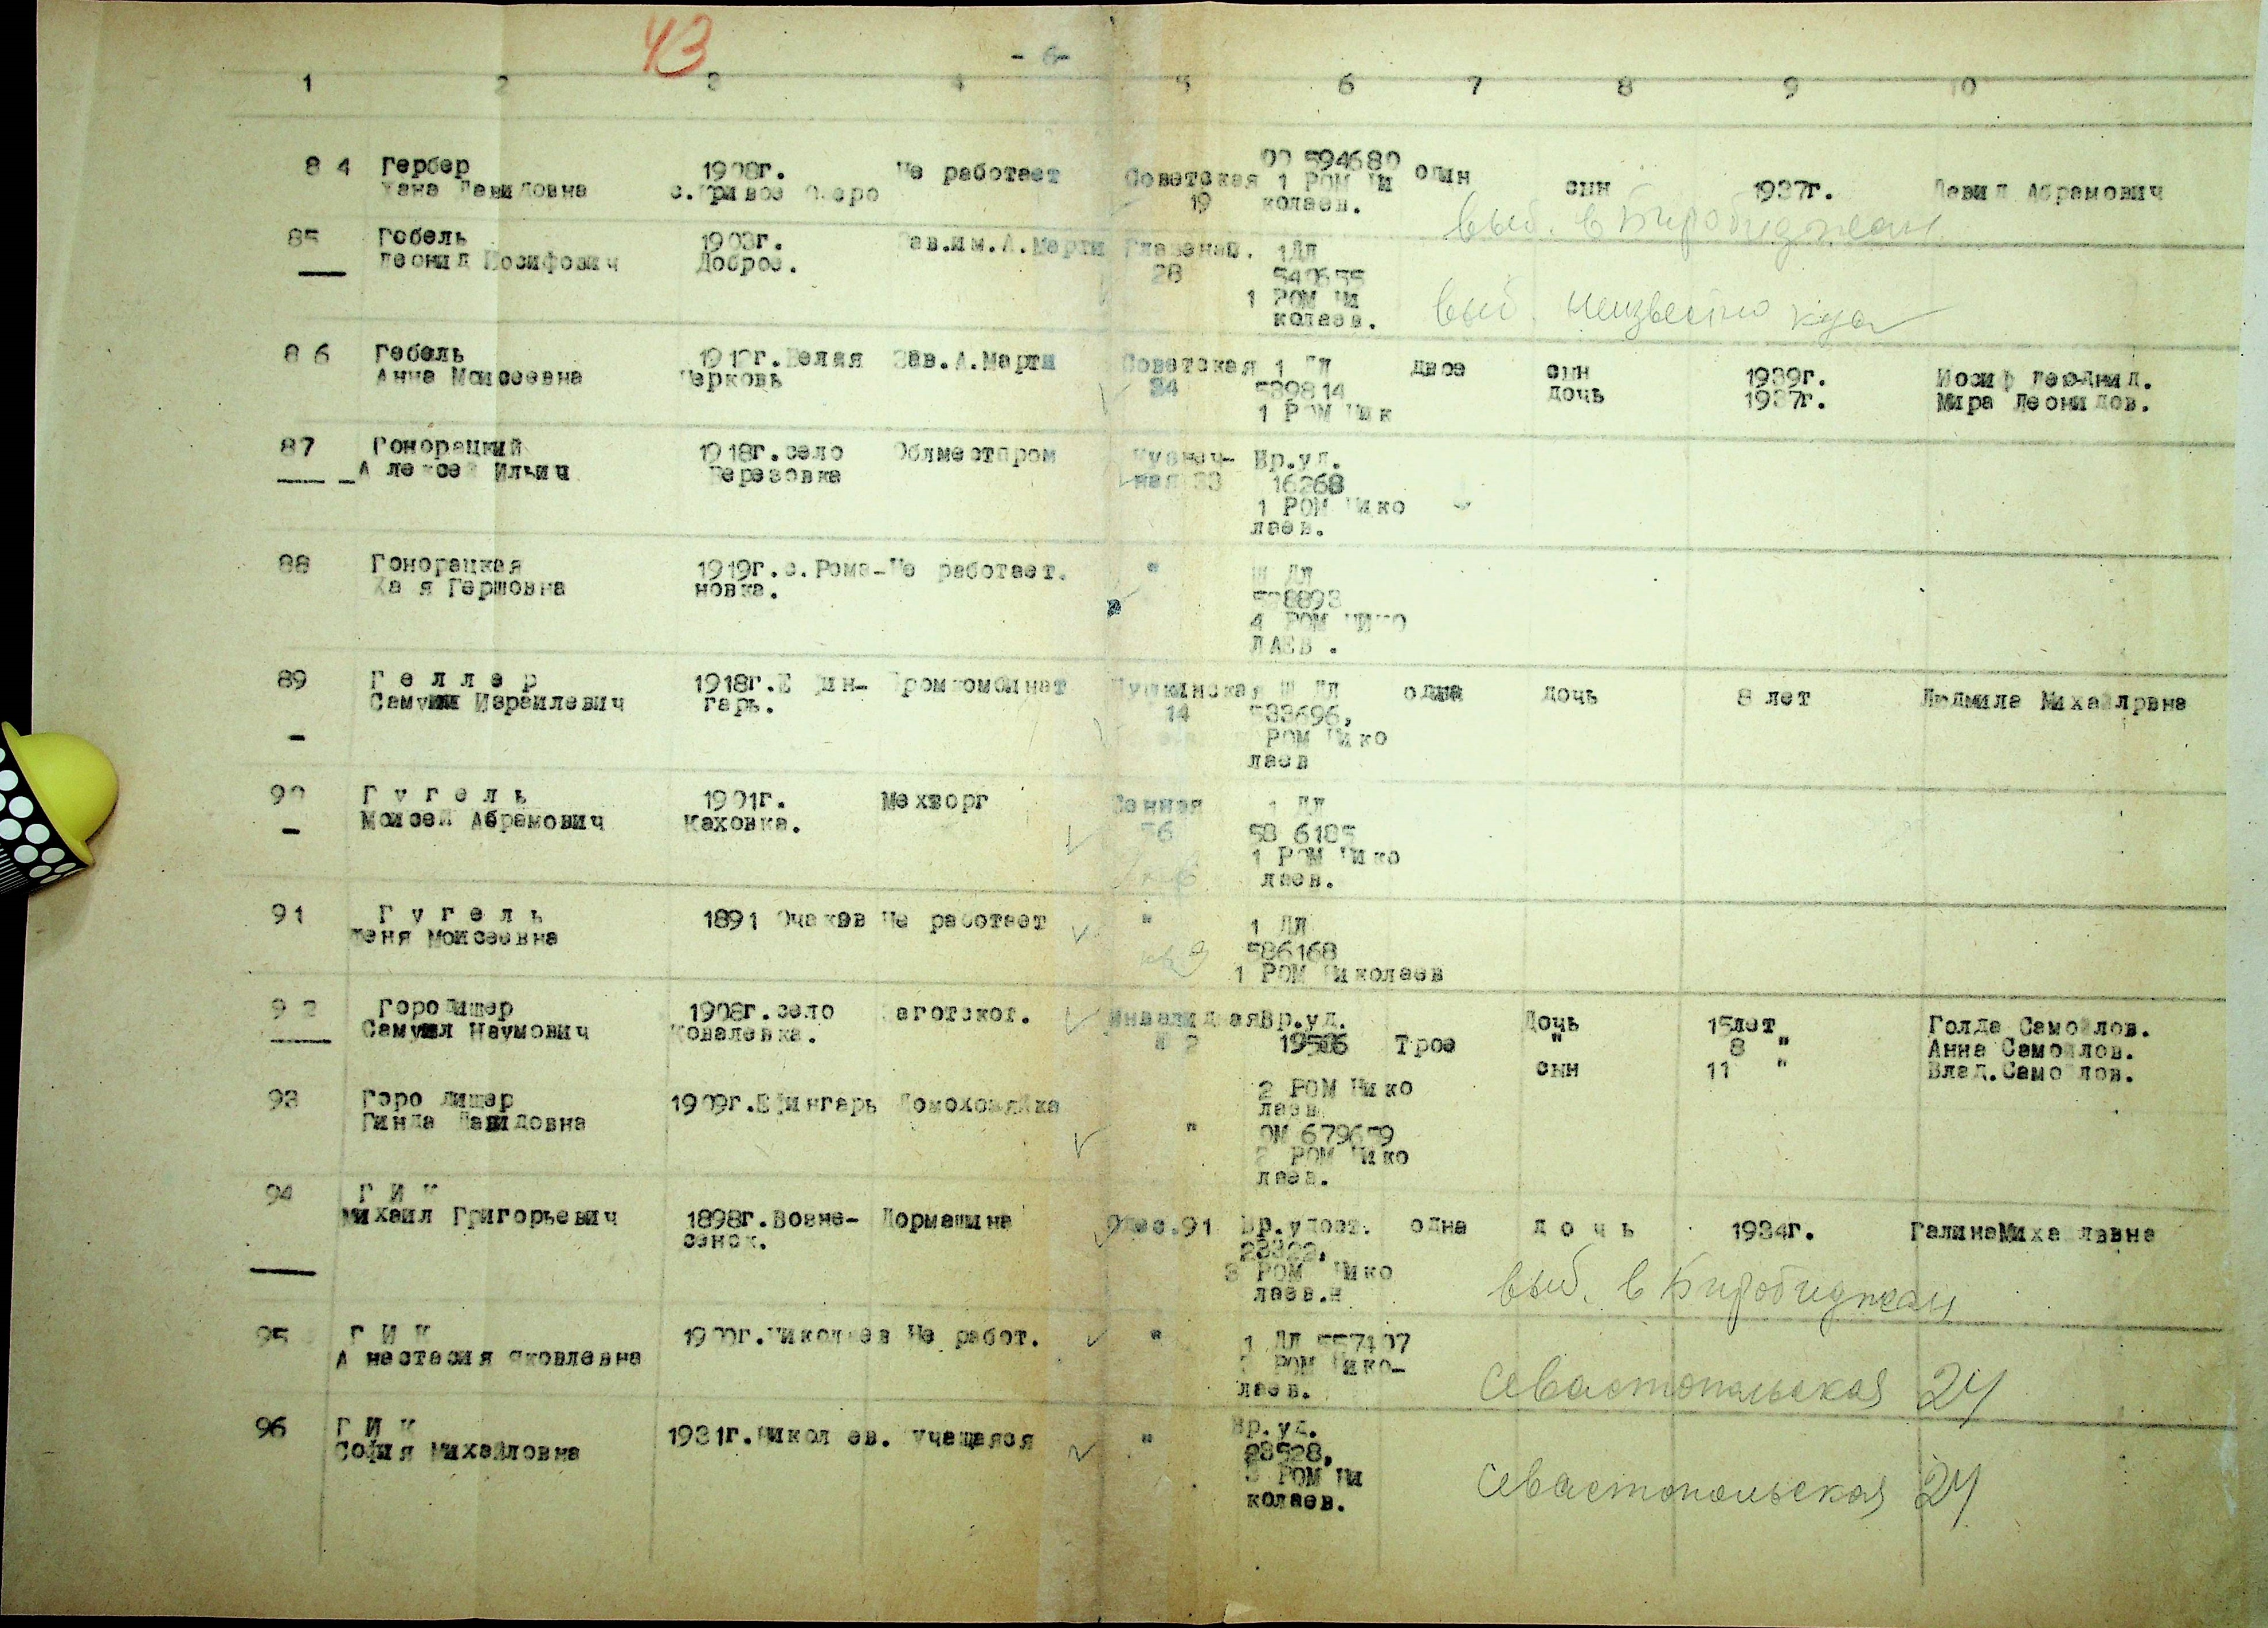 43
- 6-
1 2 3 4 5 6 7 8 9 10
84 Гербер 1908г. Не работает Советская 00 594680 один сын 1937г. Давид Абрамович
Хана Давидовна с.Кривое Озеро 19 1 РОМ Ни
колаев.
выб. в Биробиджан
85 Гобель 1903г. Зав.им.А.Марти 1ДЛ
Леонид Иосифович Доброе. 28
1 РОМ Ни
колаев.
выб. неизвестно куда
86 Гобель 1912г.Белая Зав.А.Марти Советская 1 ДЛ двое сын 1939г. Иосиф Леонид.
Анна Моисеевна Церковь 34 589814 дочь 1937г. Мира Леонидов.
1 РОМ Ник
87 Гонорацкий 1918г.село Облместпром Кузнеч- Вр.уд.
Алексей Ильич Березовка ная 33 16268
1 РОМ Нико
лаев.
88 Гонорацкая 1919г.с.Рома- Не работает. " Ш ДЛ
Хая Гершовна новка. 538893
4 РОМ НИКО
ЛАЕВ .
89 Г е л л е р 1918г.Ефин- Промкомбинат Пушкинская Ш ДЛ одна дочь 8 лет Людмила Михайлрвна
Самуил Израилевич гарь. 14 533696,
РОМ Нико
лаев
90 Г у г е л ь 1901г. Мехторг Сенная 1 ДЛ
Моисей Абрамович Каховка. 56 58 6185
1 РОМ Нико
лаев.
91 Г у г е л ь 1891 Очаков Не работает " 1 ДЛ
Моисеевна кв 9 586168
1 РОМ Николаев
92 Городищер 1908г.село Заготскот. Инвалидная Вр.уд. Дочь 15лет Голда Самойлов.
Самуил Наумович Ковалевка. № 2 19586 Трое " 8 " Анна Самойлов.
сын 11 " Влад.Самойлов.
2 РОМ Нико
лаев
93 Городищер 1909г.Ефингарь Домохозяйка " ОМ 679659
Гинда Давидовна 2 РОМ Нико
лаев.
94 Г И К
Михаил Григорьевич 1898г.Возне- Дормашина Одес.91 Вр.удост. одна д о ч ь 1934г. ГалинаМихайлввна
сенск. 28322,
3 РОМ Нико
лаев.н
выб. в Биробиджан
95 Г И К 1900г.Николаев Не работ. " 1 ДЛ 557407
Анастасия Яковлевна РОМ Нико-
лаев.
Севастопольская 24
96 Г И К 1931г.Николаев. учащаяся " Вр.уд.
София Михайловна 28528,
3 РОМ Ни
колаев.
Севастопольская 24